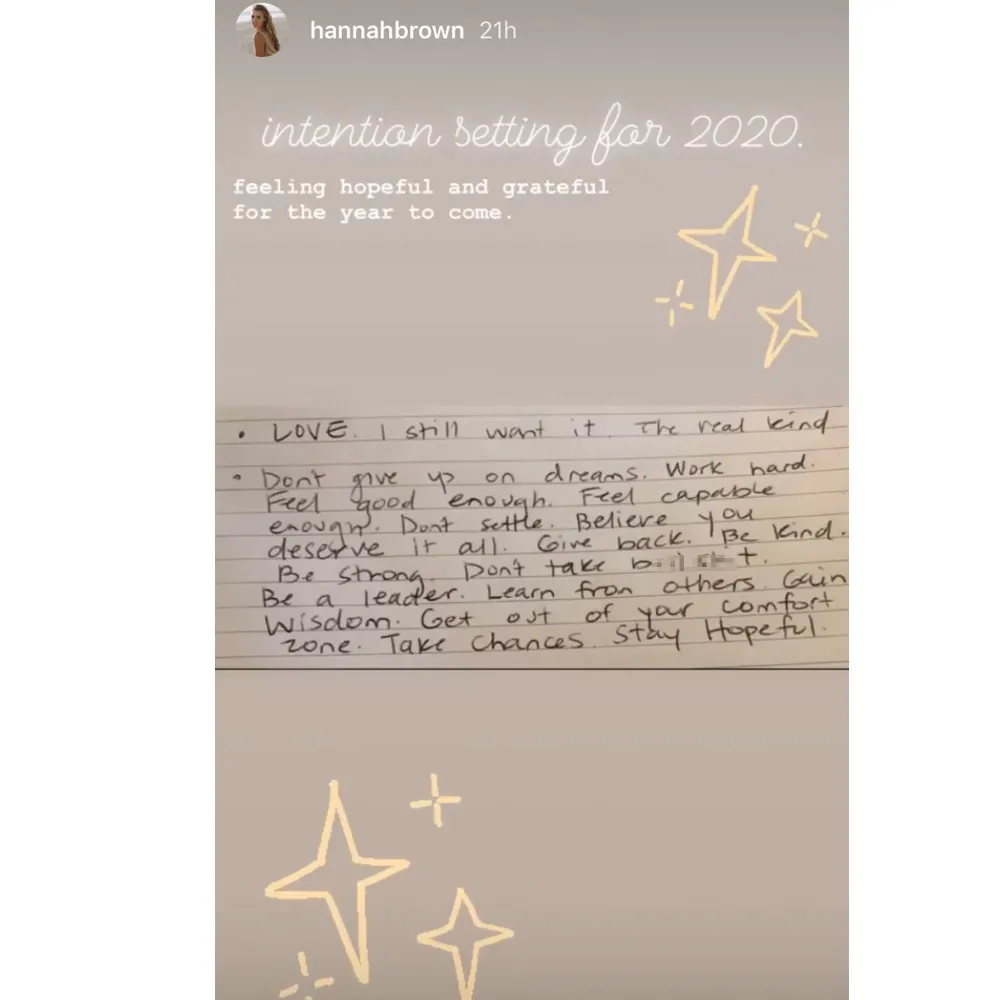 hannahbrown 21h
intention setting for 2020.
feeling hopeful and grateful
for the year to come.
• LOVE. I still want it. The real kind
• Don't give up on dreams. Work hard.
Feel good enough. Feel capable
enough. Dont settle. Believe you
deserve it all. Give back. Be kind.
Be strong. Don't take
Be a leader. Learn from others. Gain
Wisdom. Get out of your comfort
zone. Take Chances. Stay Hopeful.